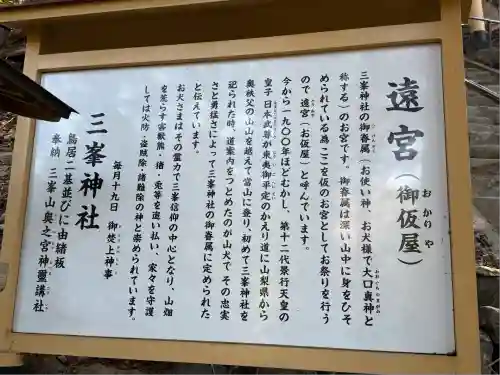 遠宮(御仮屋)
おかりや
三峯神社の御眷属(お使い神、お犬様で大口真神と
称する)のお宮です。御眷属は深い山中に身をひそ
められている為、ここを仮のお宮としてお祭りを行う
ので遠宮(お仮屋)と呼んでいます。
今から一九〇〇年ほどむかし、第十二代景行天皇の
皇子日本武尊が東夷御平定のかえり道に山梨県から
奥秩父の山山を越えて当山に登り、初めて三峯神社を
祀られた時、道案内をつとめたのが山犬でその忠実
さと勇猛さによって三峯神社の御眷属に定められた
と伝えています。
お犬さまはその霊力で三峯信仰の中心となり、山畑
を荒らす害獣熊・猪・兎等を追い払い、家々を守護
しては火防・盗賊除・諸難除の神と崇められています。
毎月十九日 御焚上神事
三峯神社
鳥居一基並びに由緒板
奉納 三峯山奥之宮神靈講社